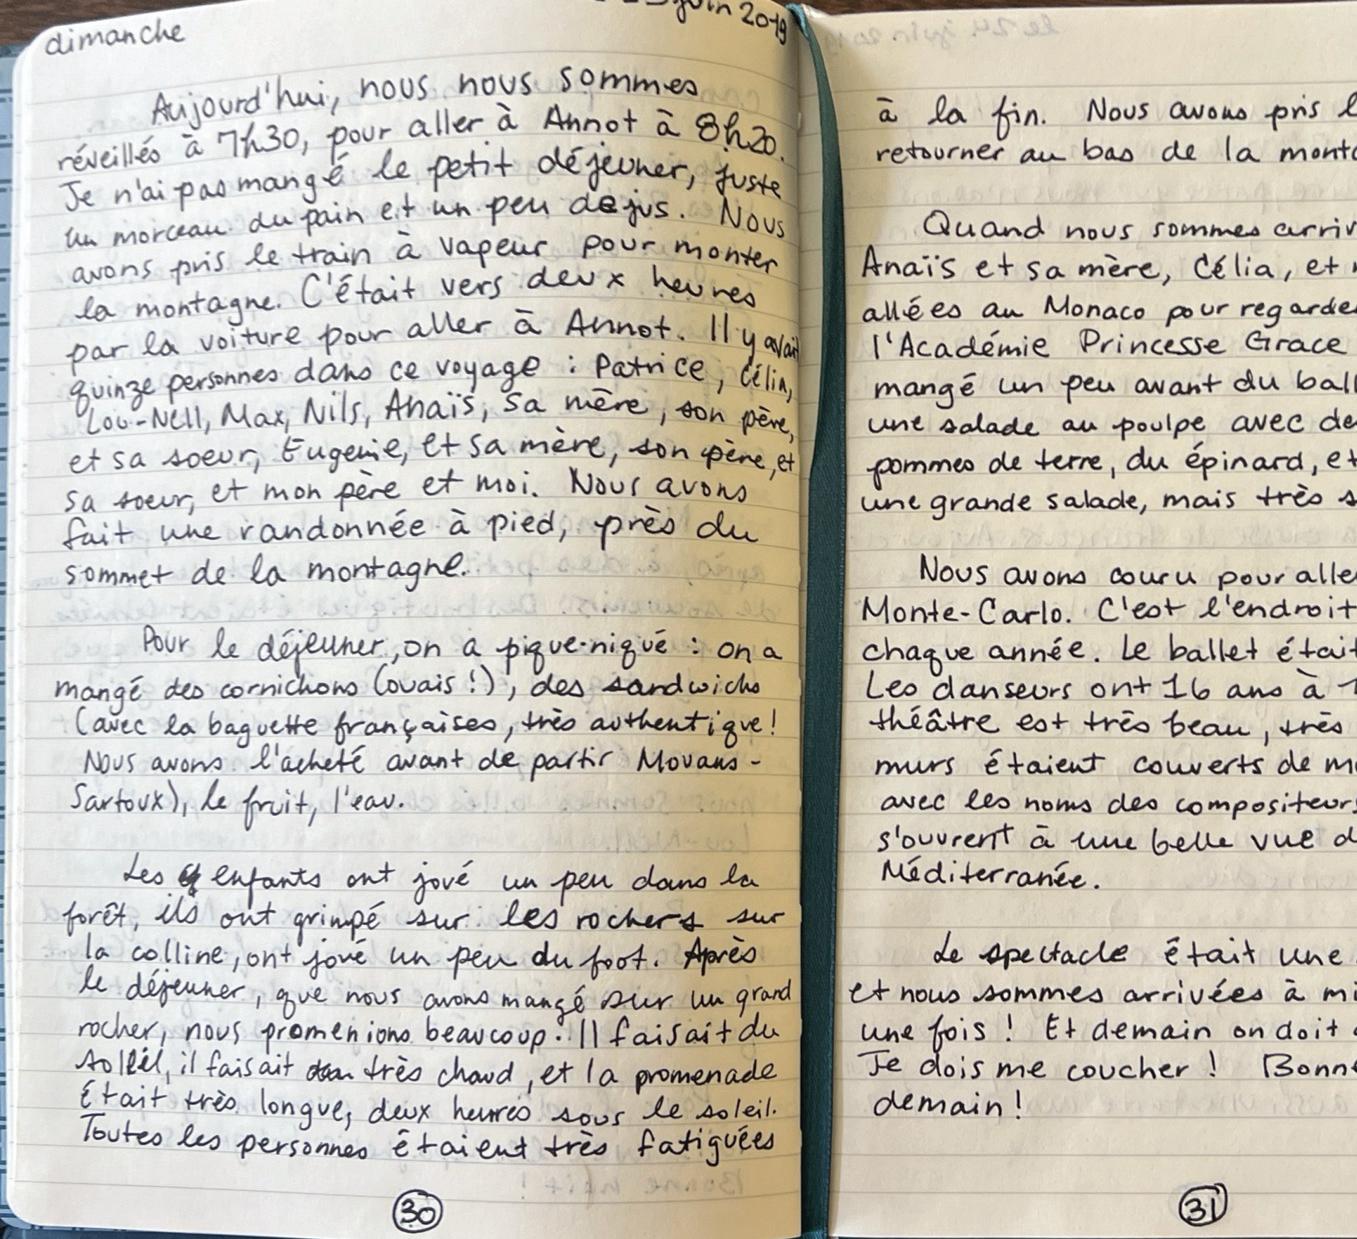 dimanche
juin 2019
Aujourd'hui, nous nous sommes
réveillés à 7h30, pour aller à Annot à 8h20.
Je n'ai pas mangé le petit déjeuner, juste
un morceau du pain et un peu de jus. Nous
avons pris le train à vapeur pour monter
la montagne. C'était vers deux heures
par la voiture pour aller à Annot. Il y avait
quinze personnes dans ce voyage : Patrice, Célia,
Lou-Nell, Max, Nils, Anaïs, sa mère, son père,
et sa soeur, Eugenie, et sa mère, son père, et
sa soeur, et mon père et moi. Nous avons
fait une randonnée à pied, près du
sommet de la montagne.
Pour le déjeuner, on a pique-niqué : on a
mangé des cornichons (ouais !), des sandwichs
(avec la baguette françaises, très authentique!
Nous avons l'acheté avant de partir Mouans-
Sartoux), le fruit, l'eau.
Les enfants ont joué un peu dans la
forêt, ils ont grimpé sur les rochers sur
la colline, ont joué un peu du foot. Après
le déjeuner, que nous avons mangé sur un grand
rocher, nous promenions beaucoup. Il faisait du
soleil, il faisait très chaud, et la promenade
était très longue, deux heures sous le soleil.
Toutes les personnes étaient très fatiguées
30
à la fin. Nous avons pris
retourner au bas de la
Quand nous sommes
Anaïs et sa mère, Célia, et
allées au Monaco pour
l'Académie Princesse Grace
mangé un peu avant du
une salade au poulpe avec
pommes de terre, du épinard,
une grande salade, mais très
Nous avons couru pour
Monte-Carlo. C'est l'endroit
chaque année. Le ballet
Les danseurs ont 16 ans à
théâtre est très beau, très
murs étaient couverts de
avec les noms des compositeurs
s'ouvrent à une belle vue
Méditerranée.
Le spectacle était une
et nous sommes arrivées à
une fois ! Et demain on doit
Je dois me coucher !
demain !
31